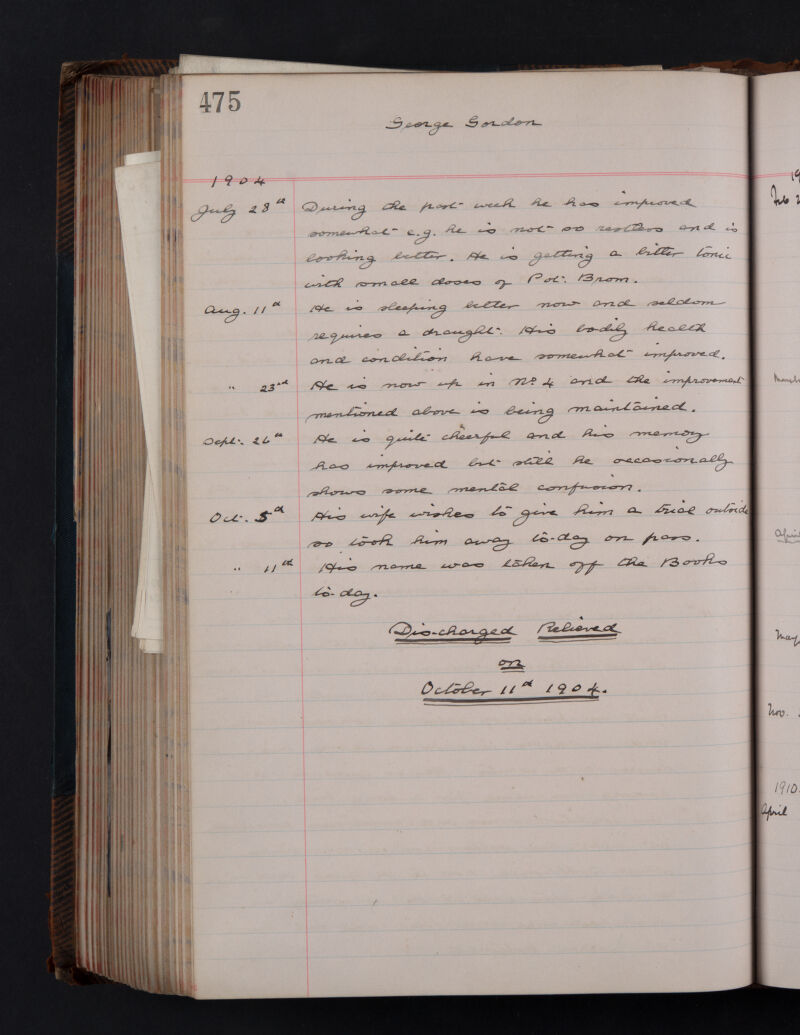 475
George Gordon
1904
July 28th During the past week he has improved
somewhat e.g. he is not so restless and is
looking better. He is getting a bitter tonic
with small doses of Pot: Brom.
Aug. 11th He is sleeping better now and seldom
requires a draught. His bodily health
and condition have somewhat improved.
" 23rd He is now up in No. 4 and the improvement
mentioned above is being maintained.
Sept. 26th He is quite cheerful and his memory
has improved but still he occasionally
shows some mental confusion.
Oct. 5th His wife wishes to give him a trial outside
so took him away to-day on pass.
" 11th His name was taken off the Books
to-day.
Dis-charged Relieved
on
October 11th 1904.
19
Feb 2
March
April
May
Nov.
1910
April